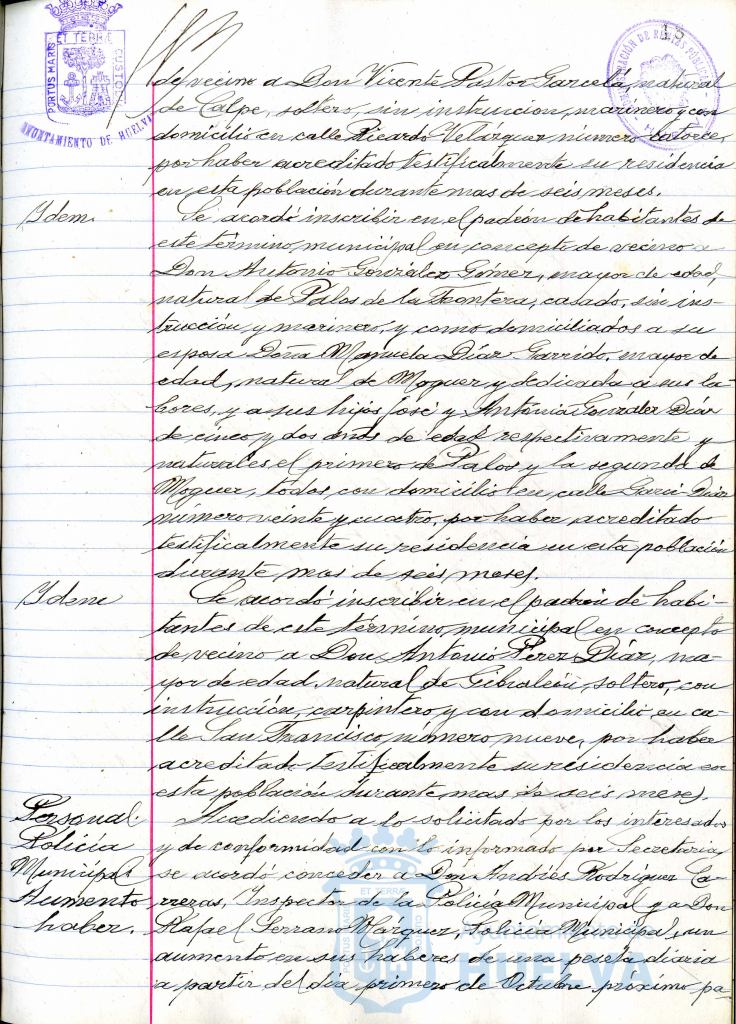 PORTUS MARIS ET TERRAE CUSTODIA
AYUNTAMIENTO DE HUELVA
18
de vecino a Don Vicente Pastor Garcelá, natural
de Calpe, soltero, sin instruccion, marinero y con
domicilio en calle Ricardo Velazquez número catorce,
por haber acreditado testificalmente su residencia
en esta población durante mas de seis meses.
Idem.
Se acordó inscribir en el padrón de habitantes de
este término municipal en concepto de vecino a
Don Antonio González Gómez, mayor de edad,
natural de Palos de la Frontera, casado, sin ins-
trucción, y marinero, y como domiciliados a su
esposa Doña Manuela Díaz Garrido, mayor de
edad, natural de Moguer y dedicada a sus la-
bores, y a sus hijos José y Antonia González Díaz
de cinco y dos años de edad respectivamente y
naturales el primero de Palos y la segunda de
Moguer, todos con domicilio en calle Garci-Díaz
número veinte y cuatro, por haber acreditado
testificalmente su residencia en esta población
durante mas de seis meses.
Idem
Se acordó inscribir en el padrón de habi-
tantes de este término municipal en concepto
de vecino a Don Antonio Pérez Díaz, ma-
yor de edad, natural de Gibraleón, soltero, con
instrucción, carpintero y con domicilio en ca-
lle San Francisco número nueve, por haber
acreditado testificalmente su residencia en
esta población durante mas de seis meses.
Personal.
Policía
Municipal.
Aumento
haber.
Accediendo a lo solicitado por los interesados
y de conformidad con lo informado por Secretaria,
se acordó conceder a Don Andrés Rodríguez Ca-
rreras, Inspector de la Policía Municipal y a Don
Rafael Serrano Marquez, Policía Municipal, un
aumento en sus haberes de una peseta diaria
a partir del dia primero de Octubre próximo pa-
Ayuntamiento de
HUELVA